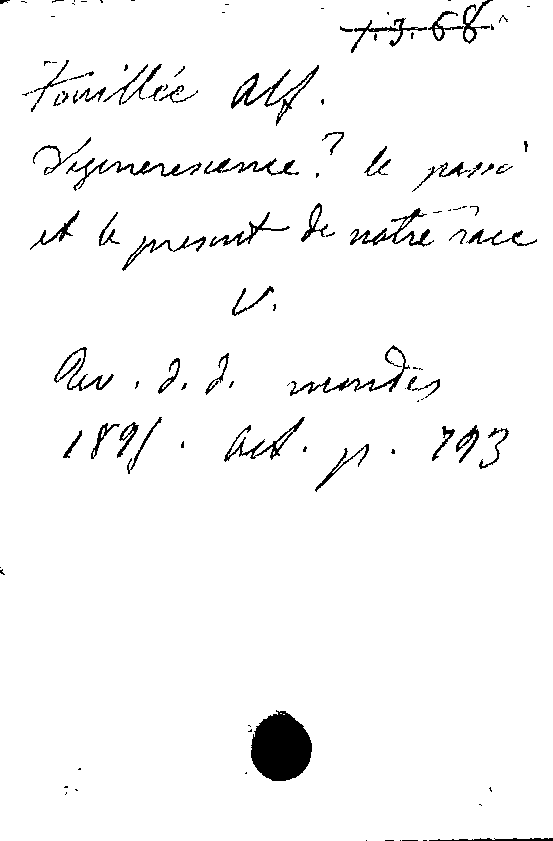 1.3.68.
Fouillée Alf.
Dégénerescence? le passé
et le présent de notre race
V.
Rev. d. d. mondes
1895. Oct. p. 793